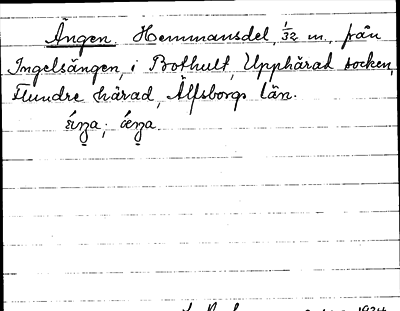 Ängen Hemmansdel, 1/32 m, från
Ingelsängen, i Bothult, Upphärad socken,
Flundre härad, Älfsborgs län.